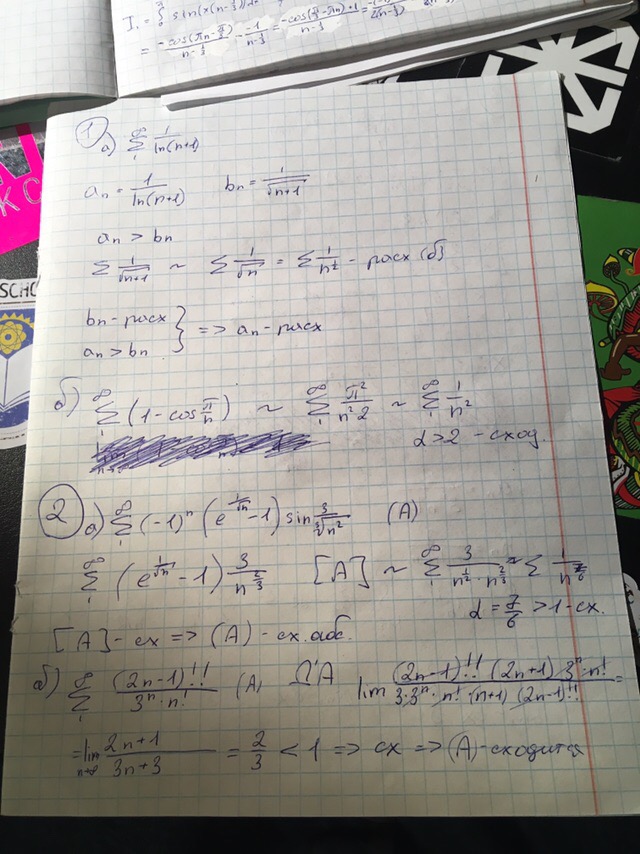 I. = ∫ sin(x(n-⅓))dx
= -cos(πn-π/3)/(n-⅓) - -1/(n-⅓) = -cos(π/3-πn)+1/(n-⅓) =
① а) ∞∑1 1/ln(n+1)
an = 1/ln(n+1) bn = 1/√(n+1)
an > bn
∑ 1/√(n+1) ~ ∑ 1/√n = ∑ 1/n^½ - расх (б)
bn - расх
an > bn } => an - расх
б) ∞∑1 (1 - cos π/n) ~ ∞∑1 π²/(n² 2) ~ ∞∑1 1/n²
α > 2 - сход.
② а) ∞∑1 (-1)^n (e^(1/√n) - 1) sin 3/∛n² (A)
∞∑1 (e^(1/√n) - 1) 3/n^(2/3) [A] ~ ∞∑1 3/(n^(1/2) · n^(2/3)) ~ ∑ 1/n^(7/6)
α = 7/6 > 1 - сх.
[A] - сх => (A) - сх. абс.
б) ∞∑1 (2n-1)!!/(3^n · n!) (A) П'А lim (2n-1)!! (2n+1) 3^n · n!/(3·3^n · n! · (n+1) (2n-1)!!) =
= lim n→∞ (2n+1)/(3n+3) = 2/3 < 1 => сх => (A) - сходится
SCHO